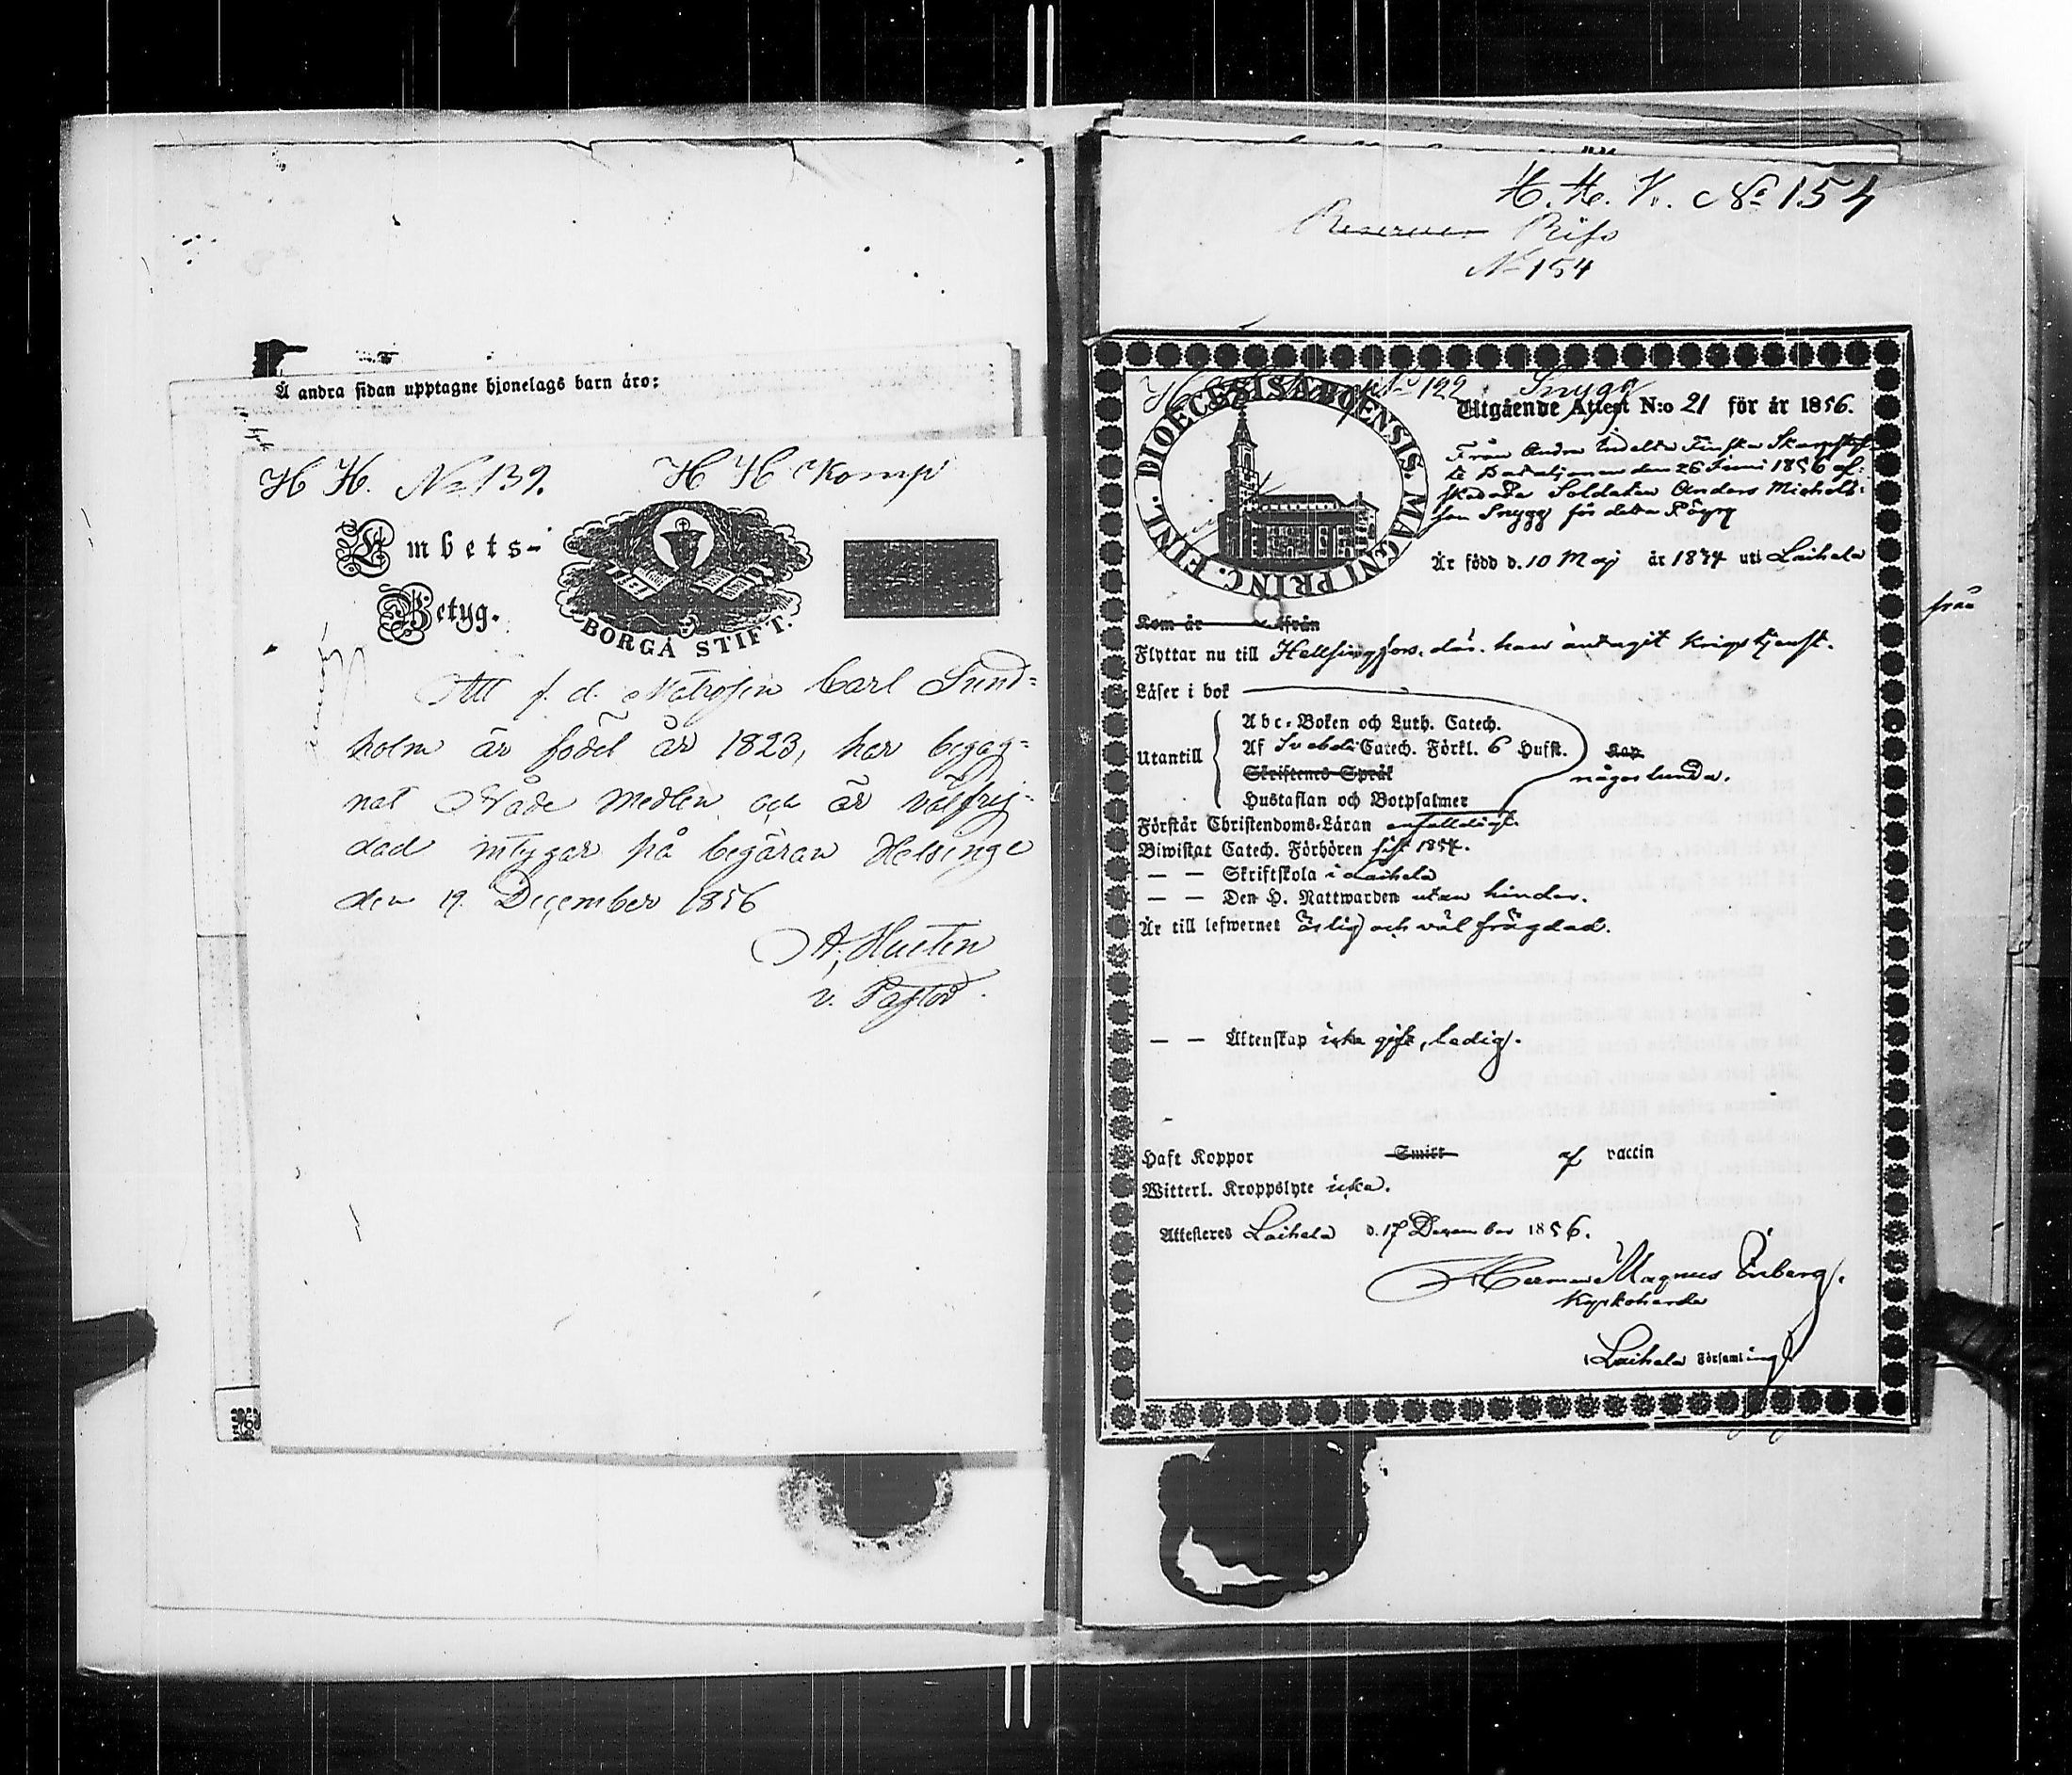 Å andra sidan upptagne hjonelags barn äro:
H H. No 139. H H Komp
Embets-
Betyg.
BORGÅ STIFT.
Att f. d. Matrosen Carl Sund=
holm är född år 1823, har begag=
nat Nåde medlen och är välfrej=
dad intygar på begäran Helsinge
den 19 December 1856
v. Pastor.
H. H. K. No 154
Reserven Rifs
No 154
No 122 Snygg
DIOECESIS ABOENSIS. MAGNI PRINC. FINL.
Utgående Attest N:o 21 för år 1856.
Från Andra Indelta Finska Skarpskyt-
te Bataljonen den 26 Juni 1856 af-
skedade Soldaten Anders Michels-
son Snygg för detta
Är född d. 10 Maj år 1834 uti Laihela
Kom år ifrån
från
Flyttar nu till Hellsingfors, där han antagit krigstjenst.
Läser i bok
Utantill
Abc-Boken och Luth. Catech.
Af Svebeli Catech. Förkl. 6 Hufst. Kap
Skriftenes Språk någorlunda.
Hustaflan och Botpsalmer
Förstår Christendoms-Läran enfalldigt.
Biwistat Catech. Förhören sist 1854.
— — Skriftskola i Laihela
— — Den H. Nattwarden utan hinder.
Är till lefwernet ärlig och väl frägdad.
— — Äktenskap icke gift, ledig.
Haft Koppor Smitt af vaccin
Witterl. Kroppslyte icke.
Attesteres Laihela d. 17 December 1856.
Herman Magnus Enberg.
Kyrkoherde
i Laihela Församling